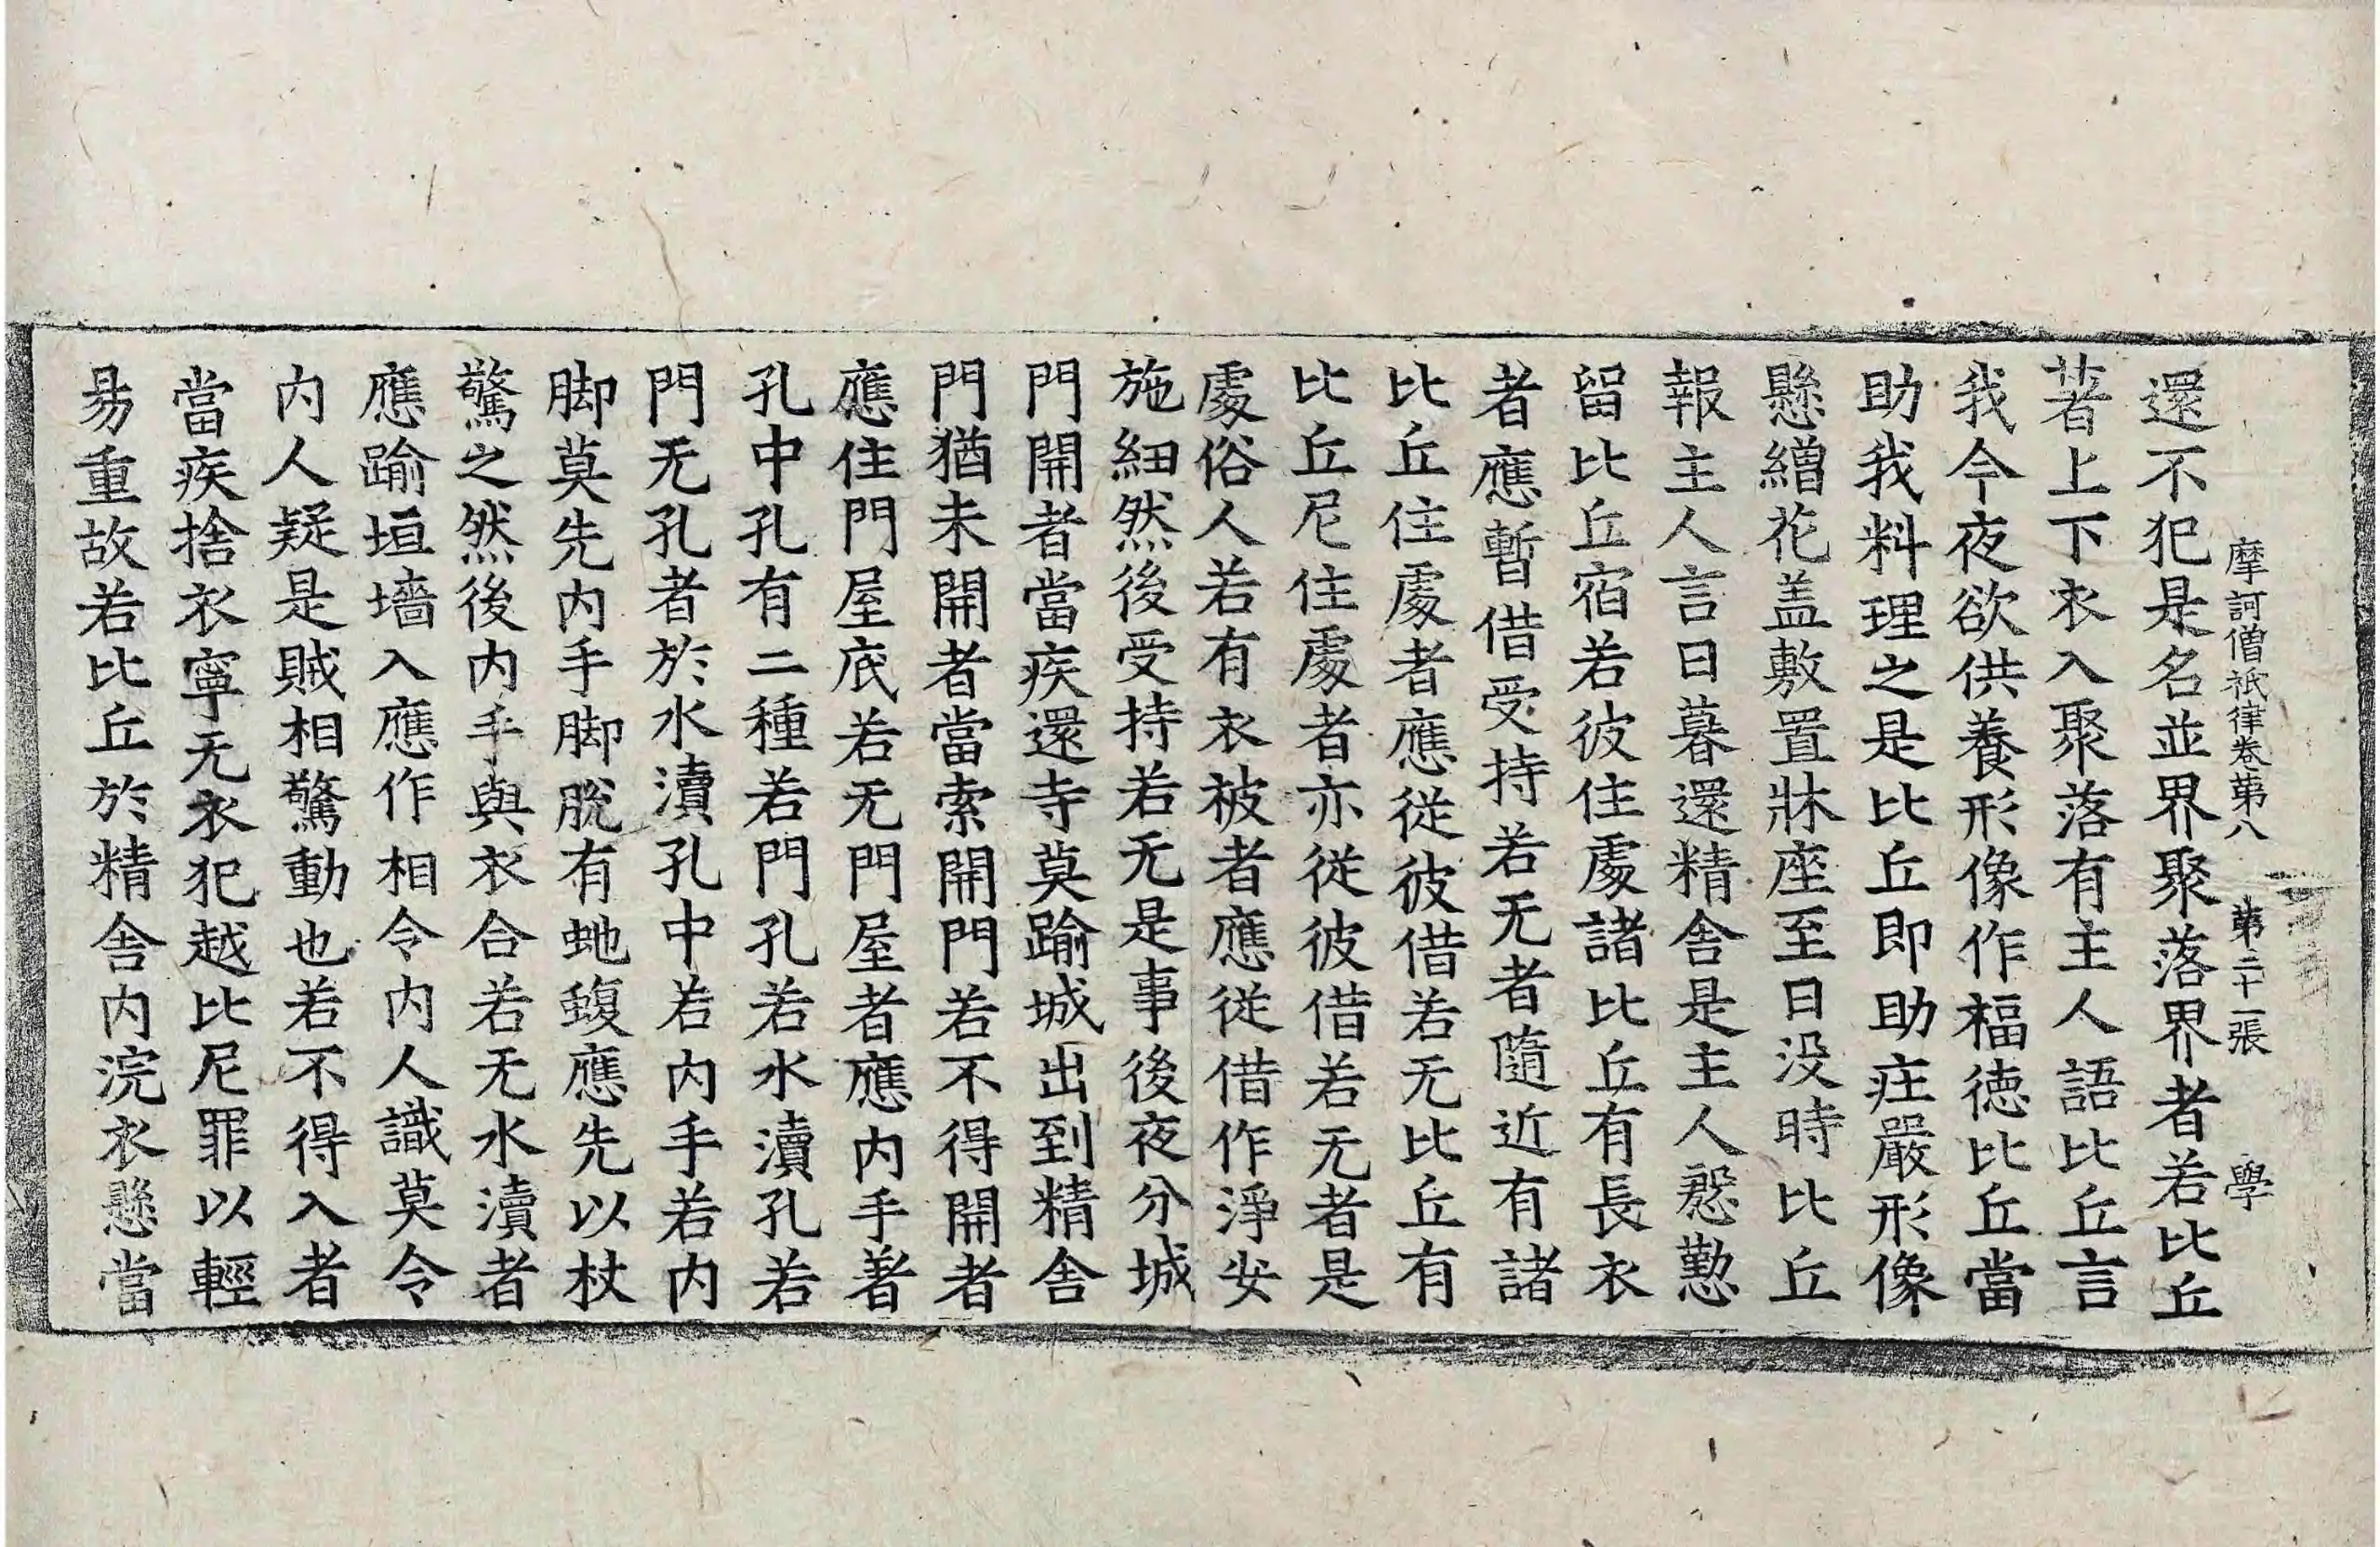 摩訶僧祇律卷第八 第二十一張 學
還不犯是名並界聚落界者若比丘
著上下衣入聚落有主人語比丘言
我今夜欲供養形像作福德比丘當
助我料理之是比丘即助庄嚴形像
懸繒花盖敷置牀座至日没時比丘
報主人言日暮還精舍是主人慇懃
留比丘宿若彼住處諸比丘有長衣
者應暫借受持若无者隨近有諸
比丘住處者應從彼借若无比丘有
比丘尼住處者亦從彼借若无者是
處俗人若有衣被者應從借作淨安
施紐然後受持若无是事後夜分城
門開者當疾還寺莫踰城出到精舍
門猶未開者當索開門若不得開者
應住門屋底若无門屋者應内手著
孔中孔有二種若門孔若水瀆孔若
門无孔者於水瀆孔中若内手若内
脚莫先内手脚脫有虵蝮應先以杖
驚之然後内手與衣合若无水瀆者
應踰垣墻入應作相令内人識莫令
内人疑是賊相驚動也若不得入者
當疾捨衣寧无衣犯越比尼罪以輕
易重故若比丘於精舍内浣衣懸當